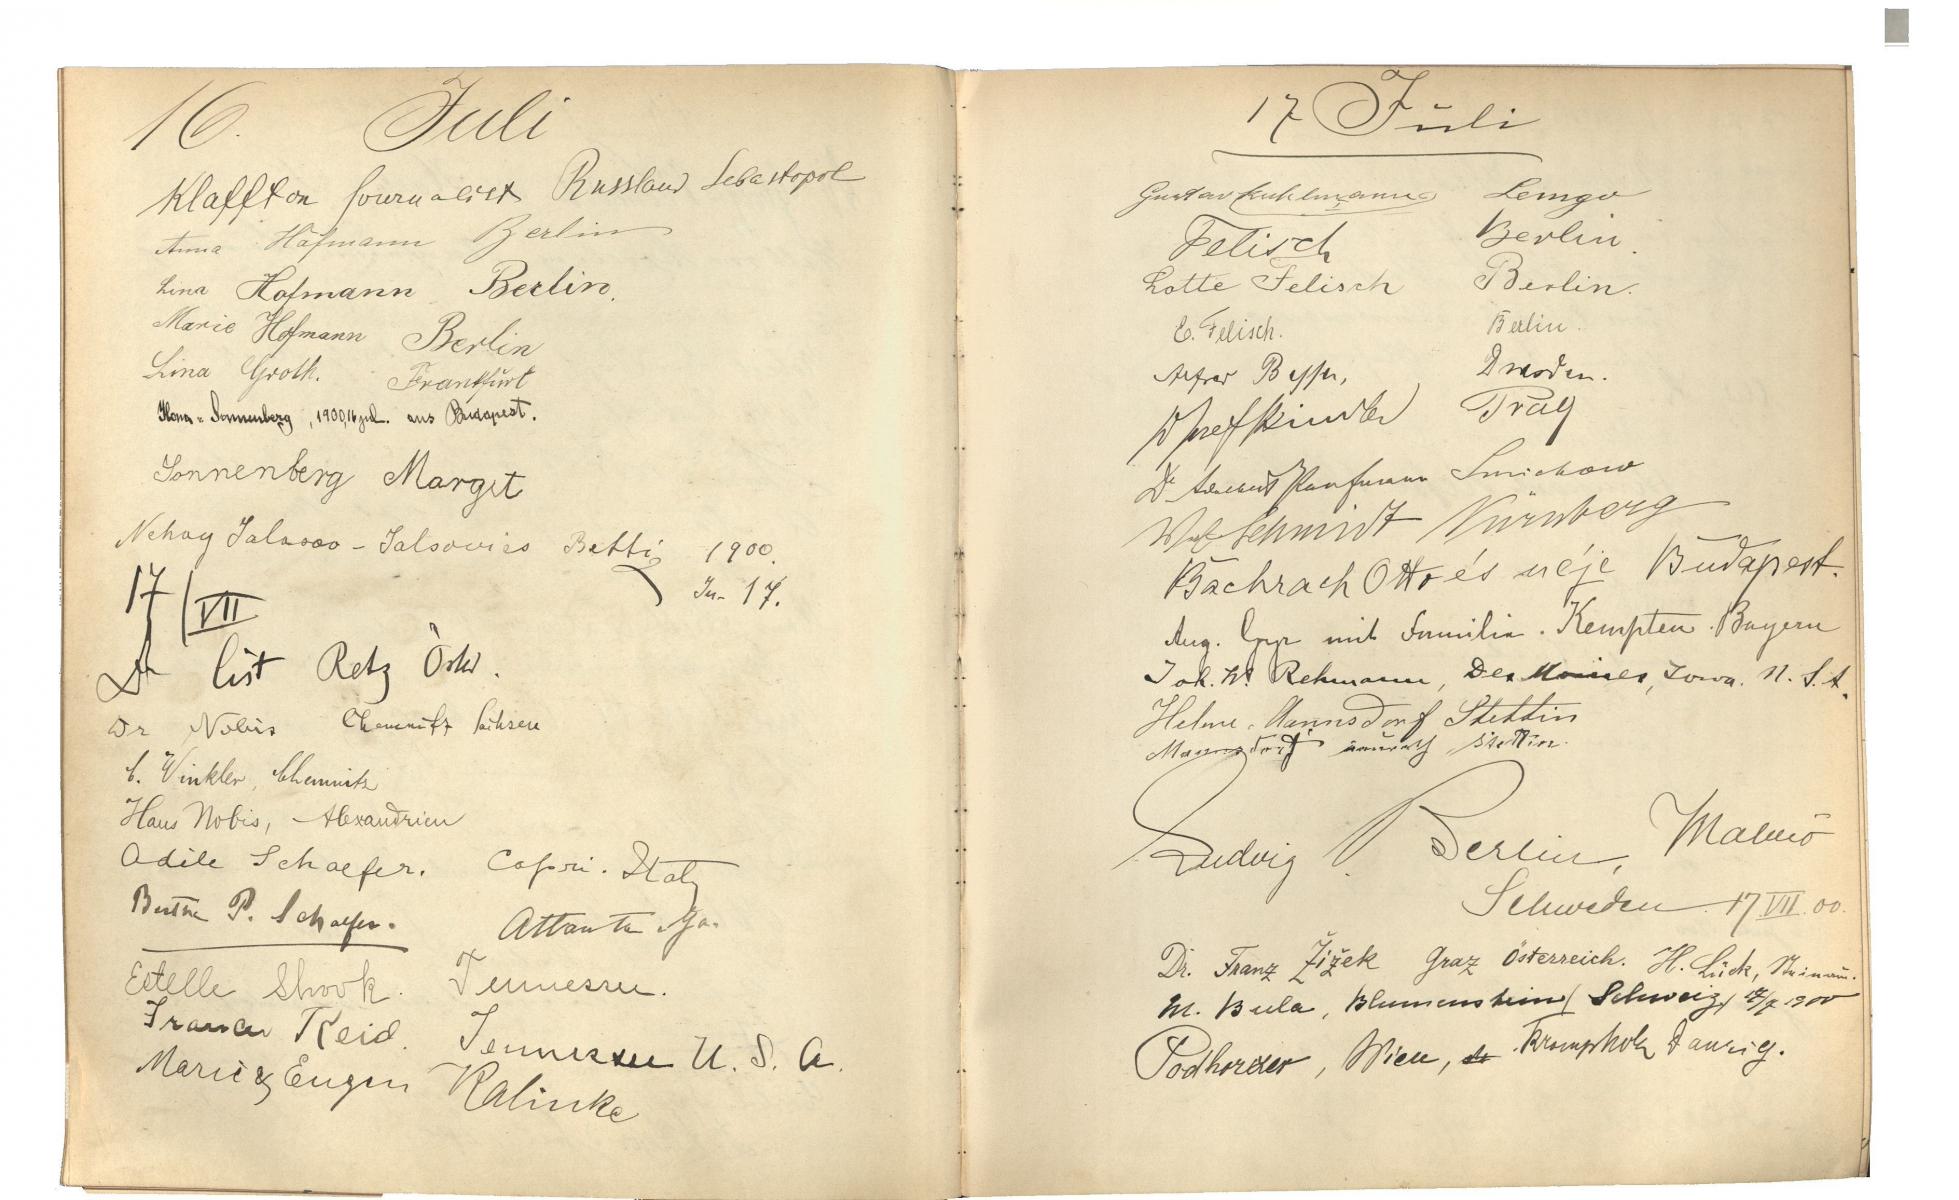 16. Juli
Klaffton Journalist Russland Sebastopol
Anna Hofmann Berlin
Lina Hofmann Berlin.
Marie Hofmann Berlin
Lina Groth. Frankfurt
Ilona Sonnenberg, 1900, 16 jul. aus Budapest.
Sonnenberg Margit
Betti 1900.
17.
17/VII
Dr List Retz Östr.
Dr Nobis Chemnitz Sachsen
C. Winkler, Chemnitz
Hans Nobis, Alexandrien
Adile Schaefer. Capri. Italy
Bertha P. Schaefer. Atlanta Ga.
Estelle Shook. Tennessee.
Frances Reid. Tennessee U. S. A.
Marie & Eugen Kalinke
17 Juli
Gustav Kuhlmann Lemgo
Felisch Berlin.
Lotte Felisch Berlin.
E. Felisch. Berlin.
Alfred Dresden.
Prag
Dr Kaufmann Smichow
Schmidt Nürnberg
Bachrach Ottó és neje Budapest.
Aug. mit Familie. Kempten. Bayern
Joh. W. Rehmann, Des Moines, Iowa. U. S. A.
Mannsdorf Stettin
Mannsdorf Stettin.
Ludvig P. Berlin, Malmö
Schweden 17 VII. 00.
Dr. Franz Žižek Graz Österreich. H. Lück, Steinau.
M. Bula, Blumenstein (Schweiz) 17/7 1900
Wien, Krompholz Danzig.